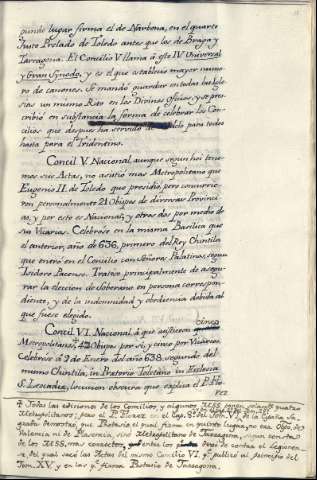 gundo lugar firma el de Narbona, en el quarto
Justo Prelado de Toledo antes que los de Braga y
Tarragona. El Concilio VI llama á este IV Universal
y Gran Synodo, y es el que establece mayor nume-
ro de canones. Se mandó guardar en todas las Igle-
sias un mismo Rito en los Divinos Oficios, y se pres-
cribió en substancia la forma de celebrar los Con-
cilios que despues ha servido de para todos
hasta para el Tridentino.
Concil. V. Nacional, aunque segun hoi tene-
mos sus Actas, no asistió mas Metropolitano que
Eugenio II. de Toledo que presidió, pero concurrie-
ron personalmente 21 Obispos de diversas Provinci-
as, y por esto es Nacional, y otros dos por medio de
sus Vicarios. Celebrose en la misma Basilica que
el anterior, año de 636, primero del Rey Chintila
que entró en el Concilio con Señores Palatinos, segun
Isidoro Pacense. Tratóse principalmente de asegu-
rar la eleccion de Soberano en persona correspon-
diente, y de la indemnidad y obediencia debida al
que fuese elegido.
Concil. VI. Nacional á que asistieron cinco
Metropolitanos, 42 Obispos por sí, y cinco por Vicarios.
Celebróse á 9 de Enero del año 638, segundo del
mismo Chintila, in Pretorio Toletano in Ecclesia
S. Leocadiae, locucion obscura que explica el P. Flo-
rez
4 Todas las ediciones de los Concilios, y algunos MSS. ponen solam.te quatro
Metropolitanos; pero el P. Florez en el Cap. 8.º del Tom. VI. de la España Sa-
grada demostró que Protasio el qual firma en quinto lugar, no era Obpo. de
Valencia ni de Plasencia, sino Metropolitano de Tarragona, segun consta
de los MSS. mas correctos,
z, del qual sacó las Actas del mismo Concilio VI. q.e publicó al principio del
Tom. XV, y en las q.e firma Protasio de Tarragona.